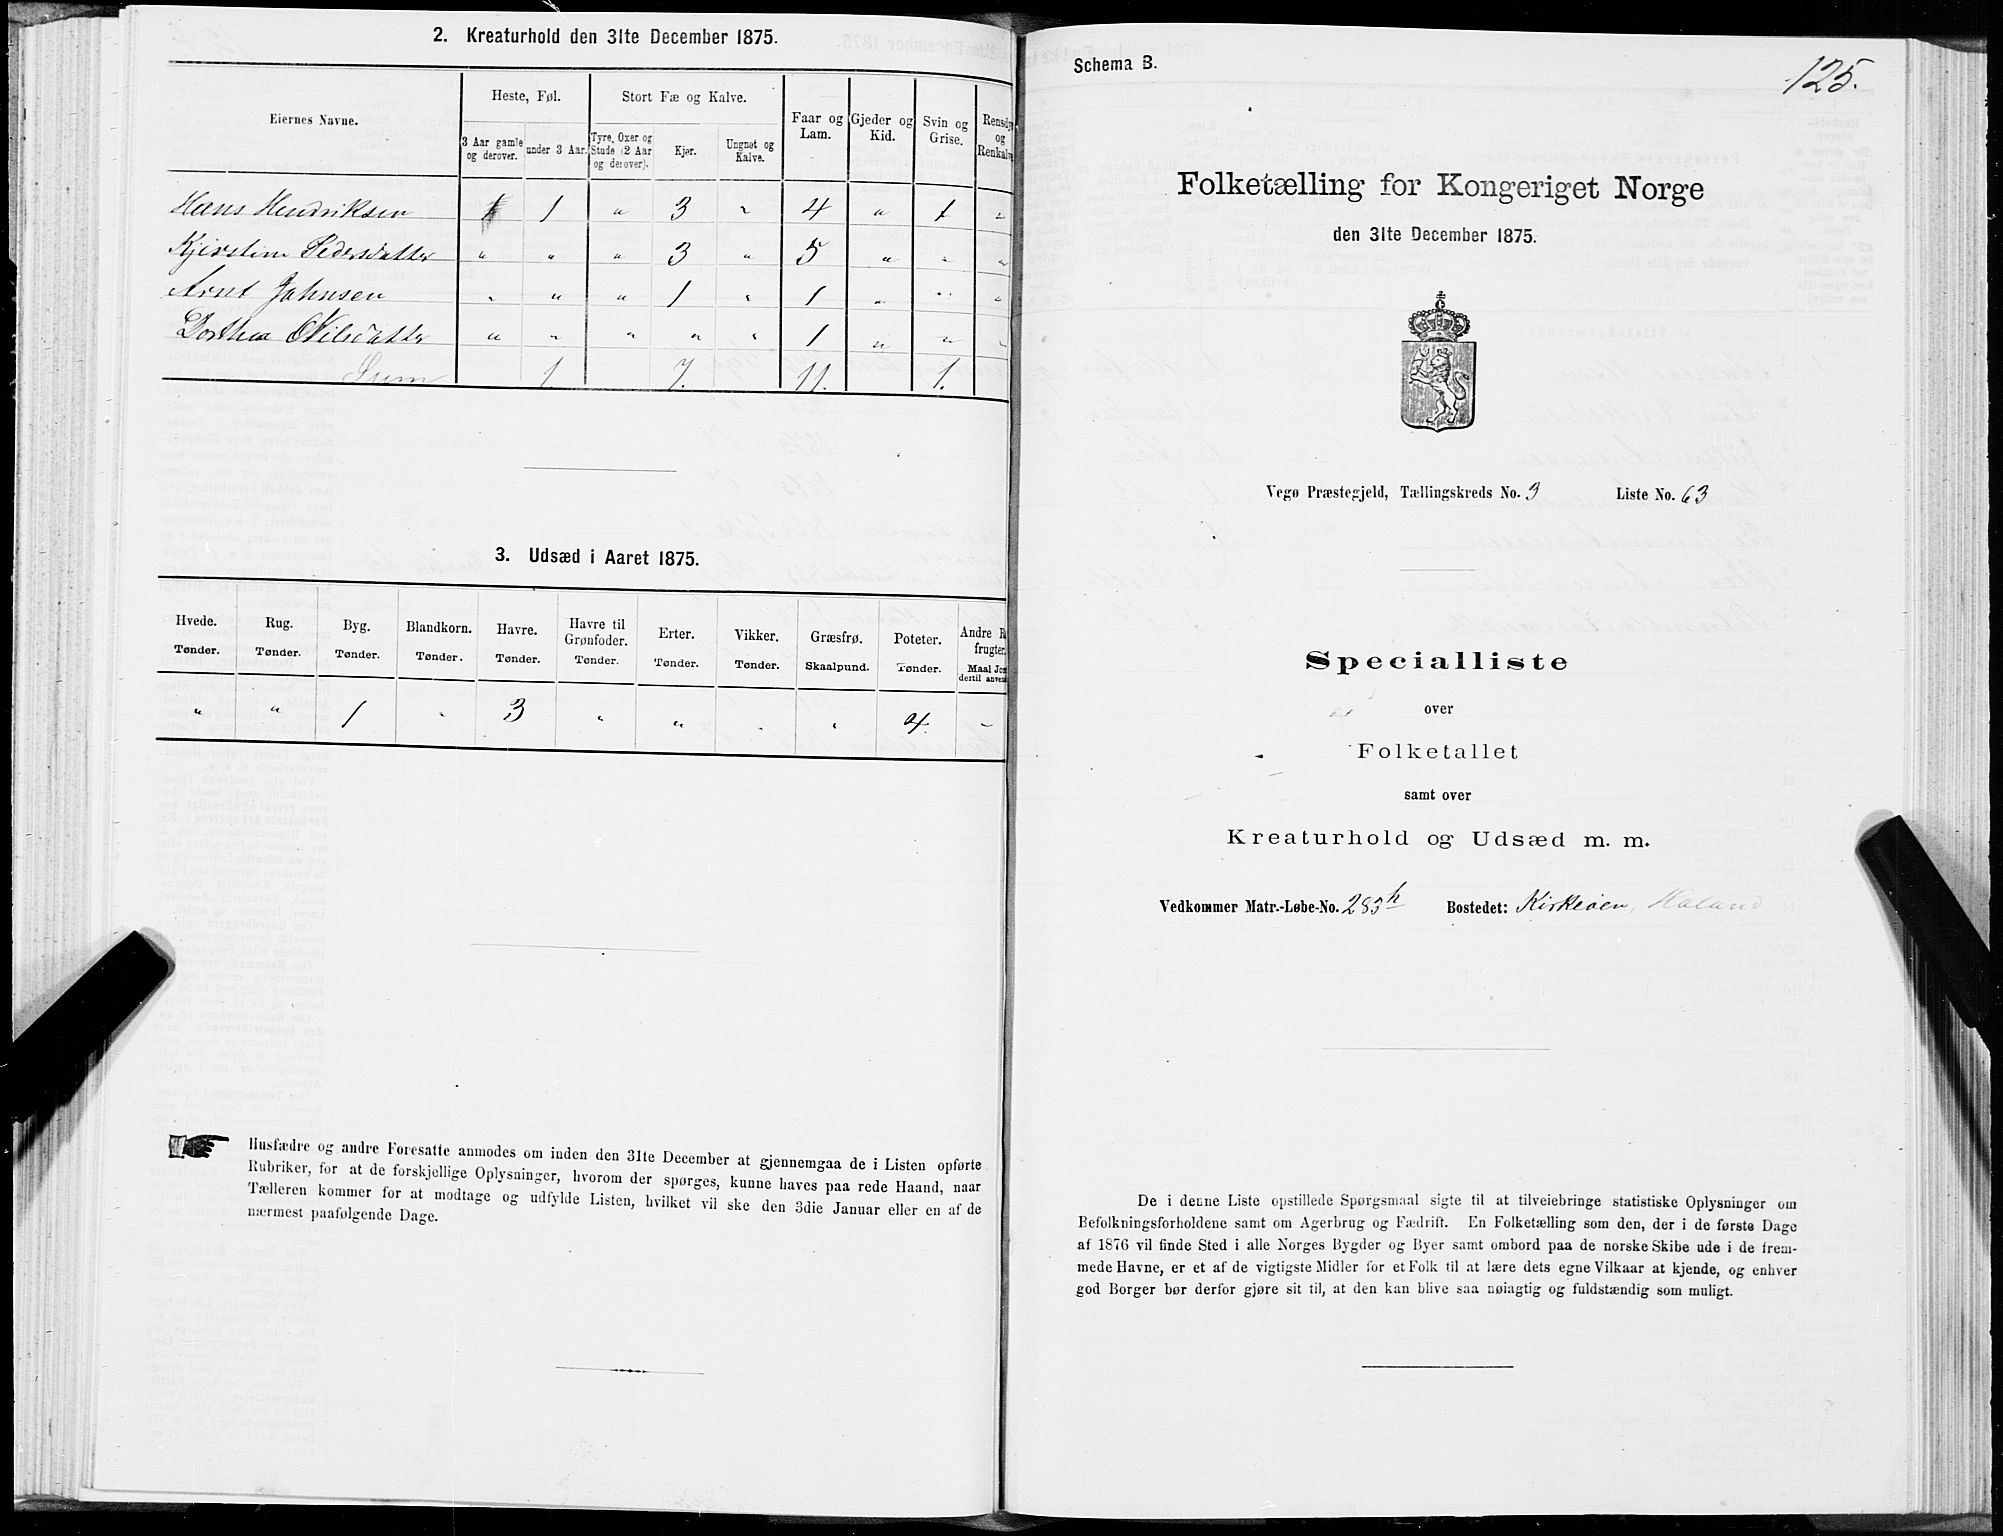 2. Kreaturhold den 31te December 1875.
Eiernes Navne. Heste, Føl. Stort Fæ og Kalve. Faar og Lam. Gjeder og Kid. Svin og Grise. Rensdyr og Renkalve
3 Aar gamle og derover. under 3 Aar. Tyre, Oxer og Stude (2 Aar og derover). Kjør. Ungnøt og Kalve.
Hans Hendriksen 1 1 " 3 " 4 " 1 "
Kjerstine Pedersdatter " " " 3 " 5 " " "
Arnt Johnsen " " " 1 " 1 " " "
Dorthea Nilsdatter " " " " " 1 " " "
Sum 1 7. 11. 1.
3. Udsæd i Aaret 1875.
Hvede. Rug. Byg. Blandkorn. Havre. Havre til Grønfoder. Erter. Vikker. Græsfrø. Poteter. Andre R frugter.
Tønder. Tønder. Tønder. Tønder. Tønder. Tønder. Tønder. Tønder. Skaalpund. Tønder. Maal Jor dertil anven
" " 1 " 3 " " " " 4. "
Husfædre og andre Foresatte anmodes om inden den 31te December at gjennemgaa de i Listen opførte
Rubriker, for at de forskjellige Oplysninger, hvorom der spørges, kunne haves paa rede Haand, naar
Tælleren kommer for at modtage og udfylde Listen, hvilket vil ske den 3die Januar eller en af de
nærmest paafølgende Dage.
Schema B.
125.
Folketælling for Kongeriget Norge
den 31te December 1875.
Vegø Præstegjeld, Tællingskreds No. 3 Liste No. 63
Specialliste
over
Folketallet
samt over
Kreaturhold og Udsæd m. m.
Vedkommer Matr.-Løbe-No. 283h Bostedet: Kirkeøen, Haland
De i denne Liste opstillede Spørgsmaal sigte til at tilveiebringe statistiske Oplysninger om
Befolkningsforholdene samt om Agerbrug og Fædrift. En Folketælling som den, der i de første Dage
af 1876 vil finde Sted i alle Norges Bygder og Byer samt ombord paa de norske Skibe ude i de frem-
mede Havne, er et af de vigtigste Midler for et Folk til at lære dets egne Vilkaar at kjende, og enhver
god Borger bør derfor gjøre sit til, at den kan blive saa nøiagtig og fuldstændig som muligt.